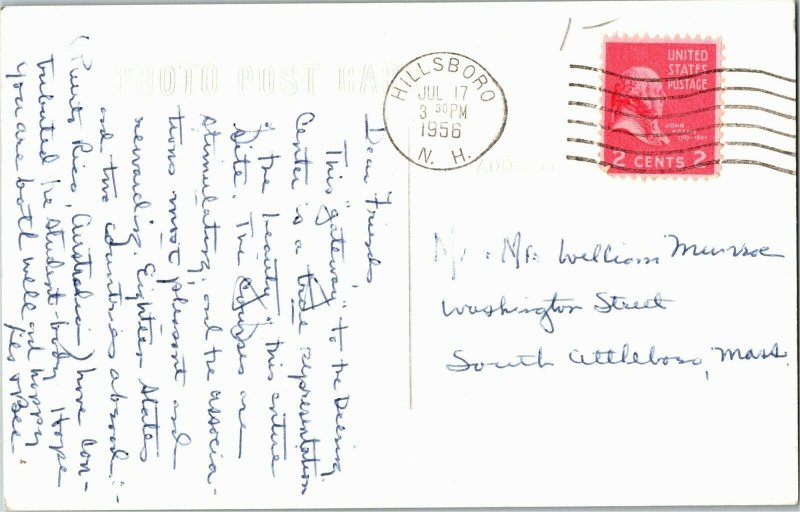 PHOTO POST CARD
HILLSBORO
JUL 17
3 30 PM
1956
N. H.
UNITED
STATES
POSTAGE
JOHN
ADAMS
2 CENTS 2
Dear Friends,
This "gateway" to the Deering
Center is a true representation
of the beauty of this entire
site. The courses are
stimulating, and the associa-
tions most pleasant and
rewarding. Eighteen states
and two countries abroad -
(Puerto Rico, Australia) have con-
tributed the student-body. Hope
you are both well and happy
Les & Bee.
Mr. Wm. William Munroe
Washington Street
South Attleboro, Mass.